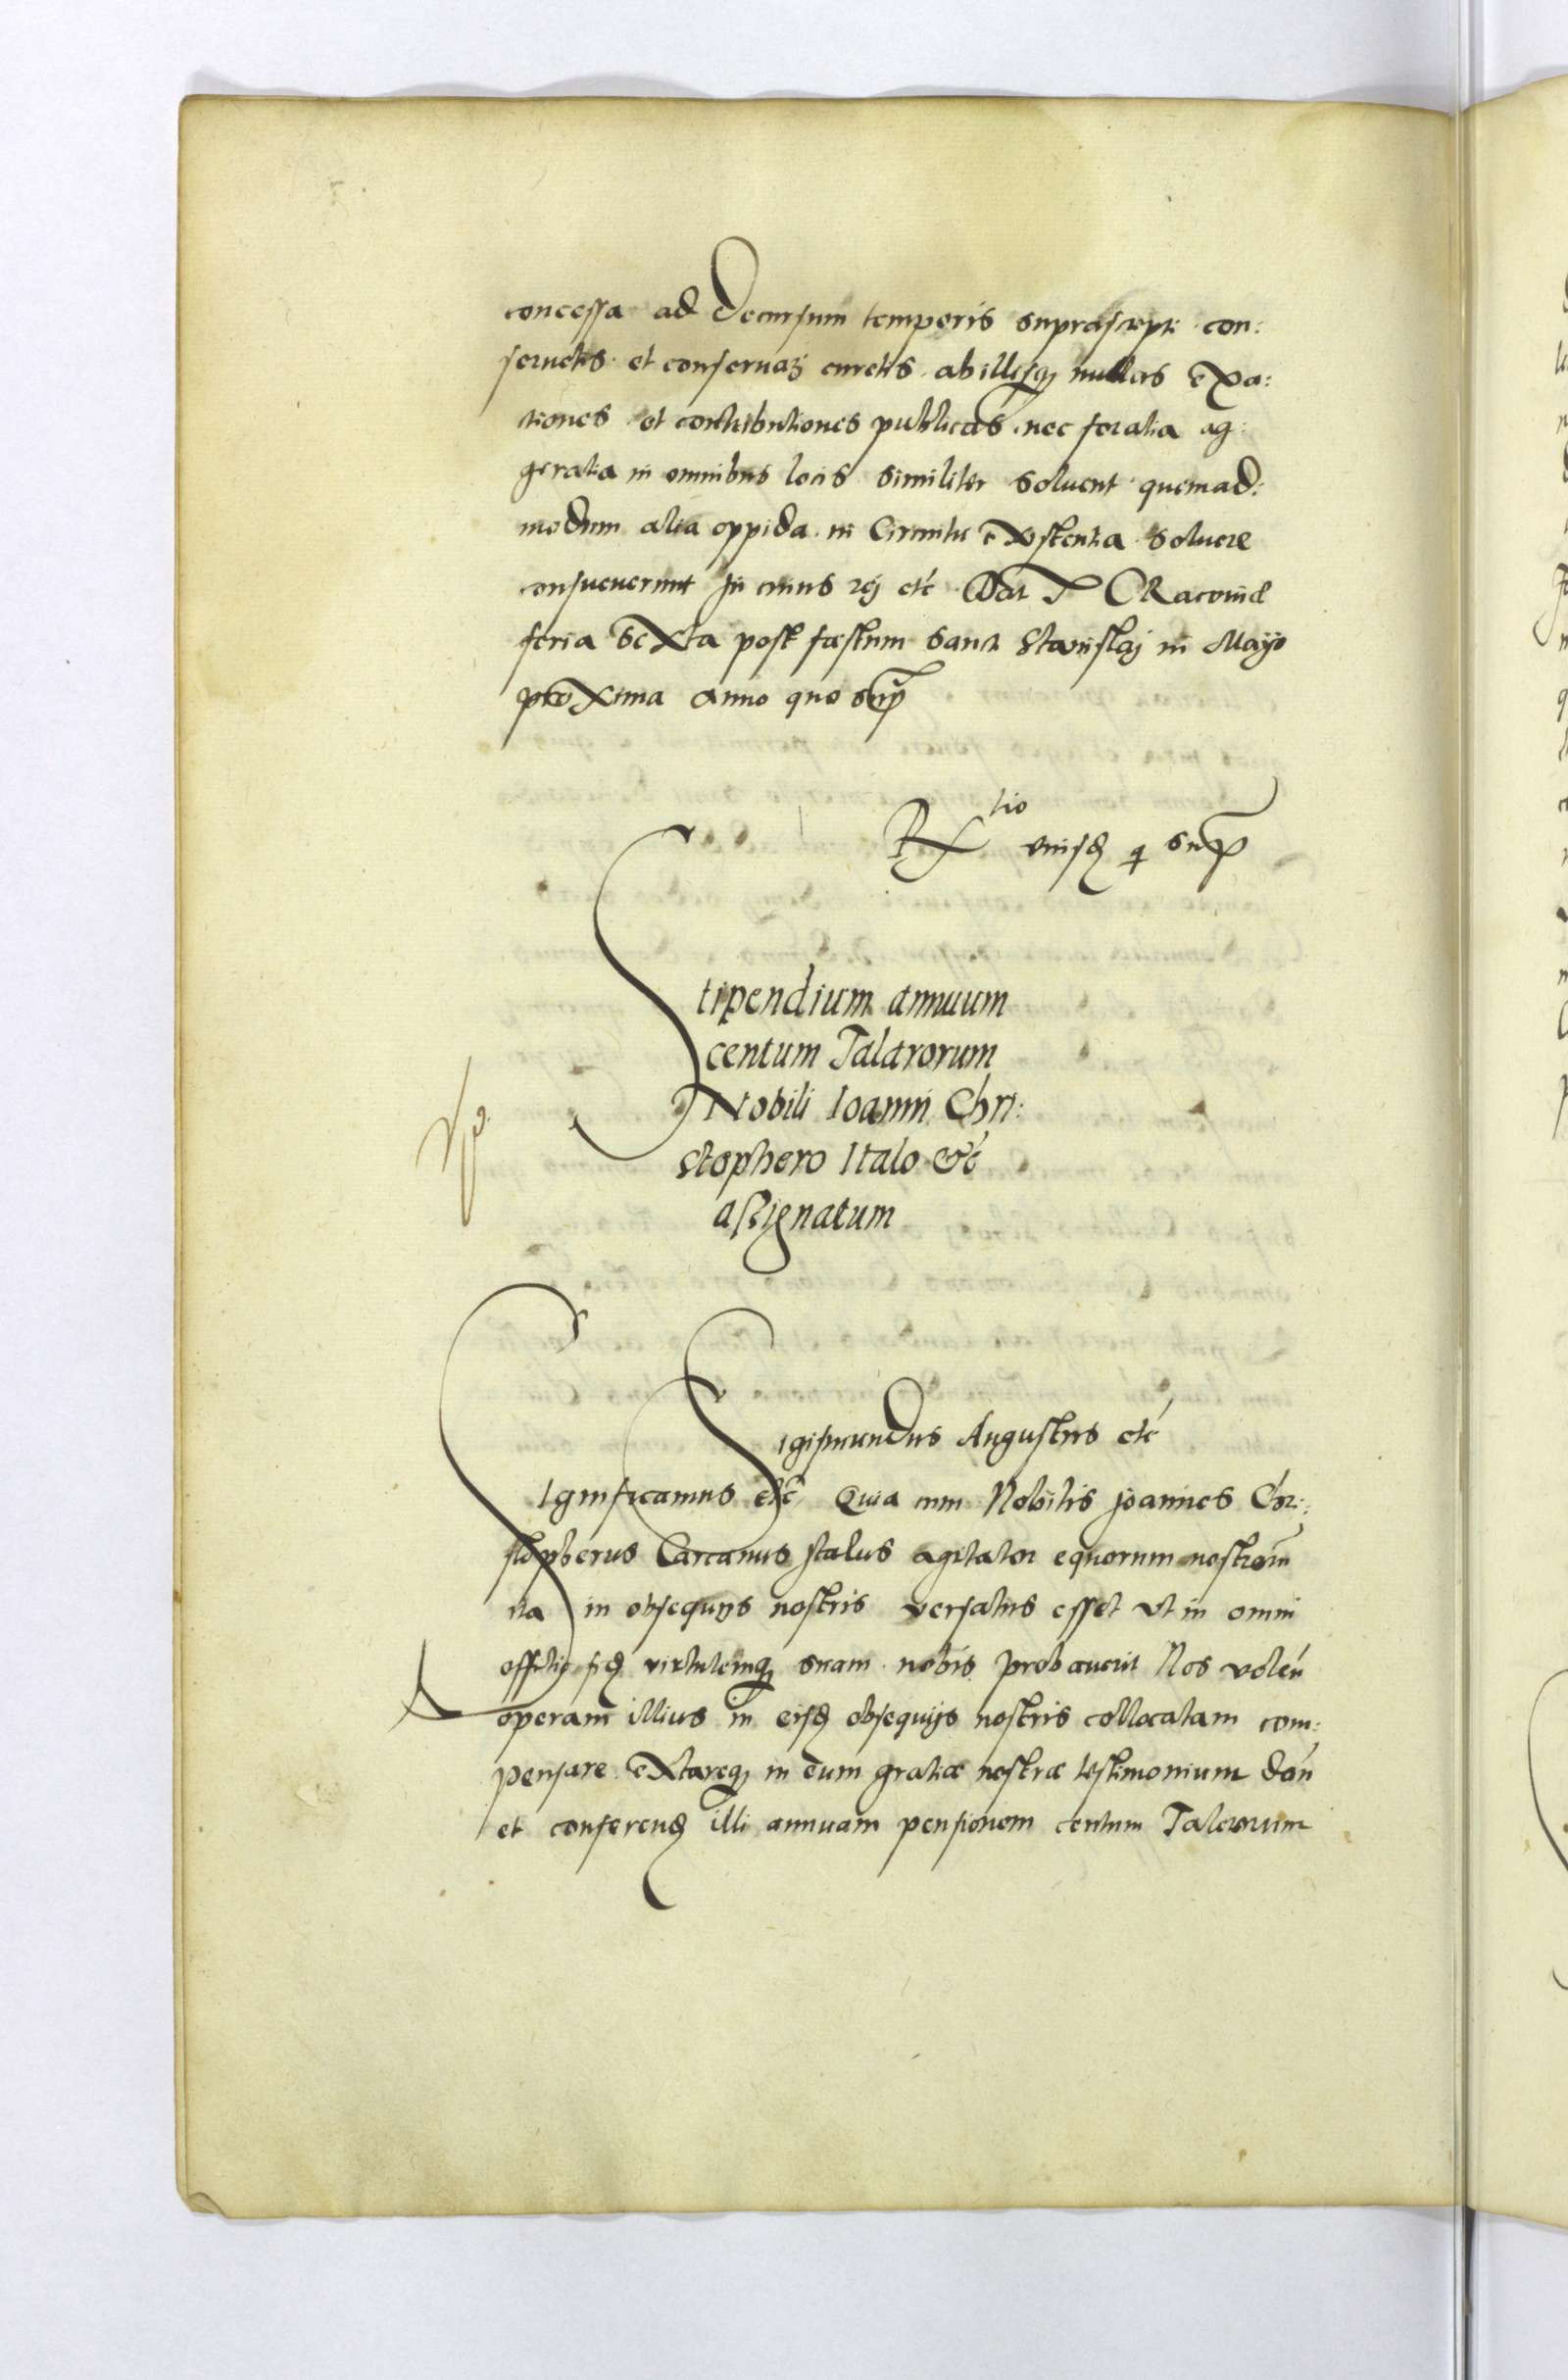 concessa ad decursum temporis suprascripti con:
seruetis et conseruari curetis ab illisque nullas exa:
ctiones et contributiones publicas nec foralia ag:
geralia in omnibus locis similiter soluent quemad:
modum alia oppida in Circuitu existentia soluere
consueuerunt In cuius rej etc Dat Cracouiae
feria sexta post festum sancti Stanislaj in Mayo
proxima anno quo supra
Rtio eiusd q supra
Stipendium annuum
centum Talarorum
Nobili Ioanni Chri:
stophero Italo etc
assignatum
Sigismundus Augustus etc
Significamus etc Quia cum Nobilis Joannes Chri:
stopherus Carcanus Italus agitator equorum nostrorum
ita in obsequijs nostris versatus esset vt in omni
officio fid virtutemque suam nobis probauerit Nos volen
operam illius in eisd obsequijs nostris collocatam com:
pensare extareque in eum gratiae nostrae testimonium dan
et conferend illi annuam pensionem centum Talerorum